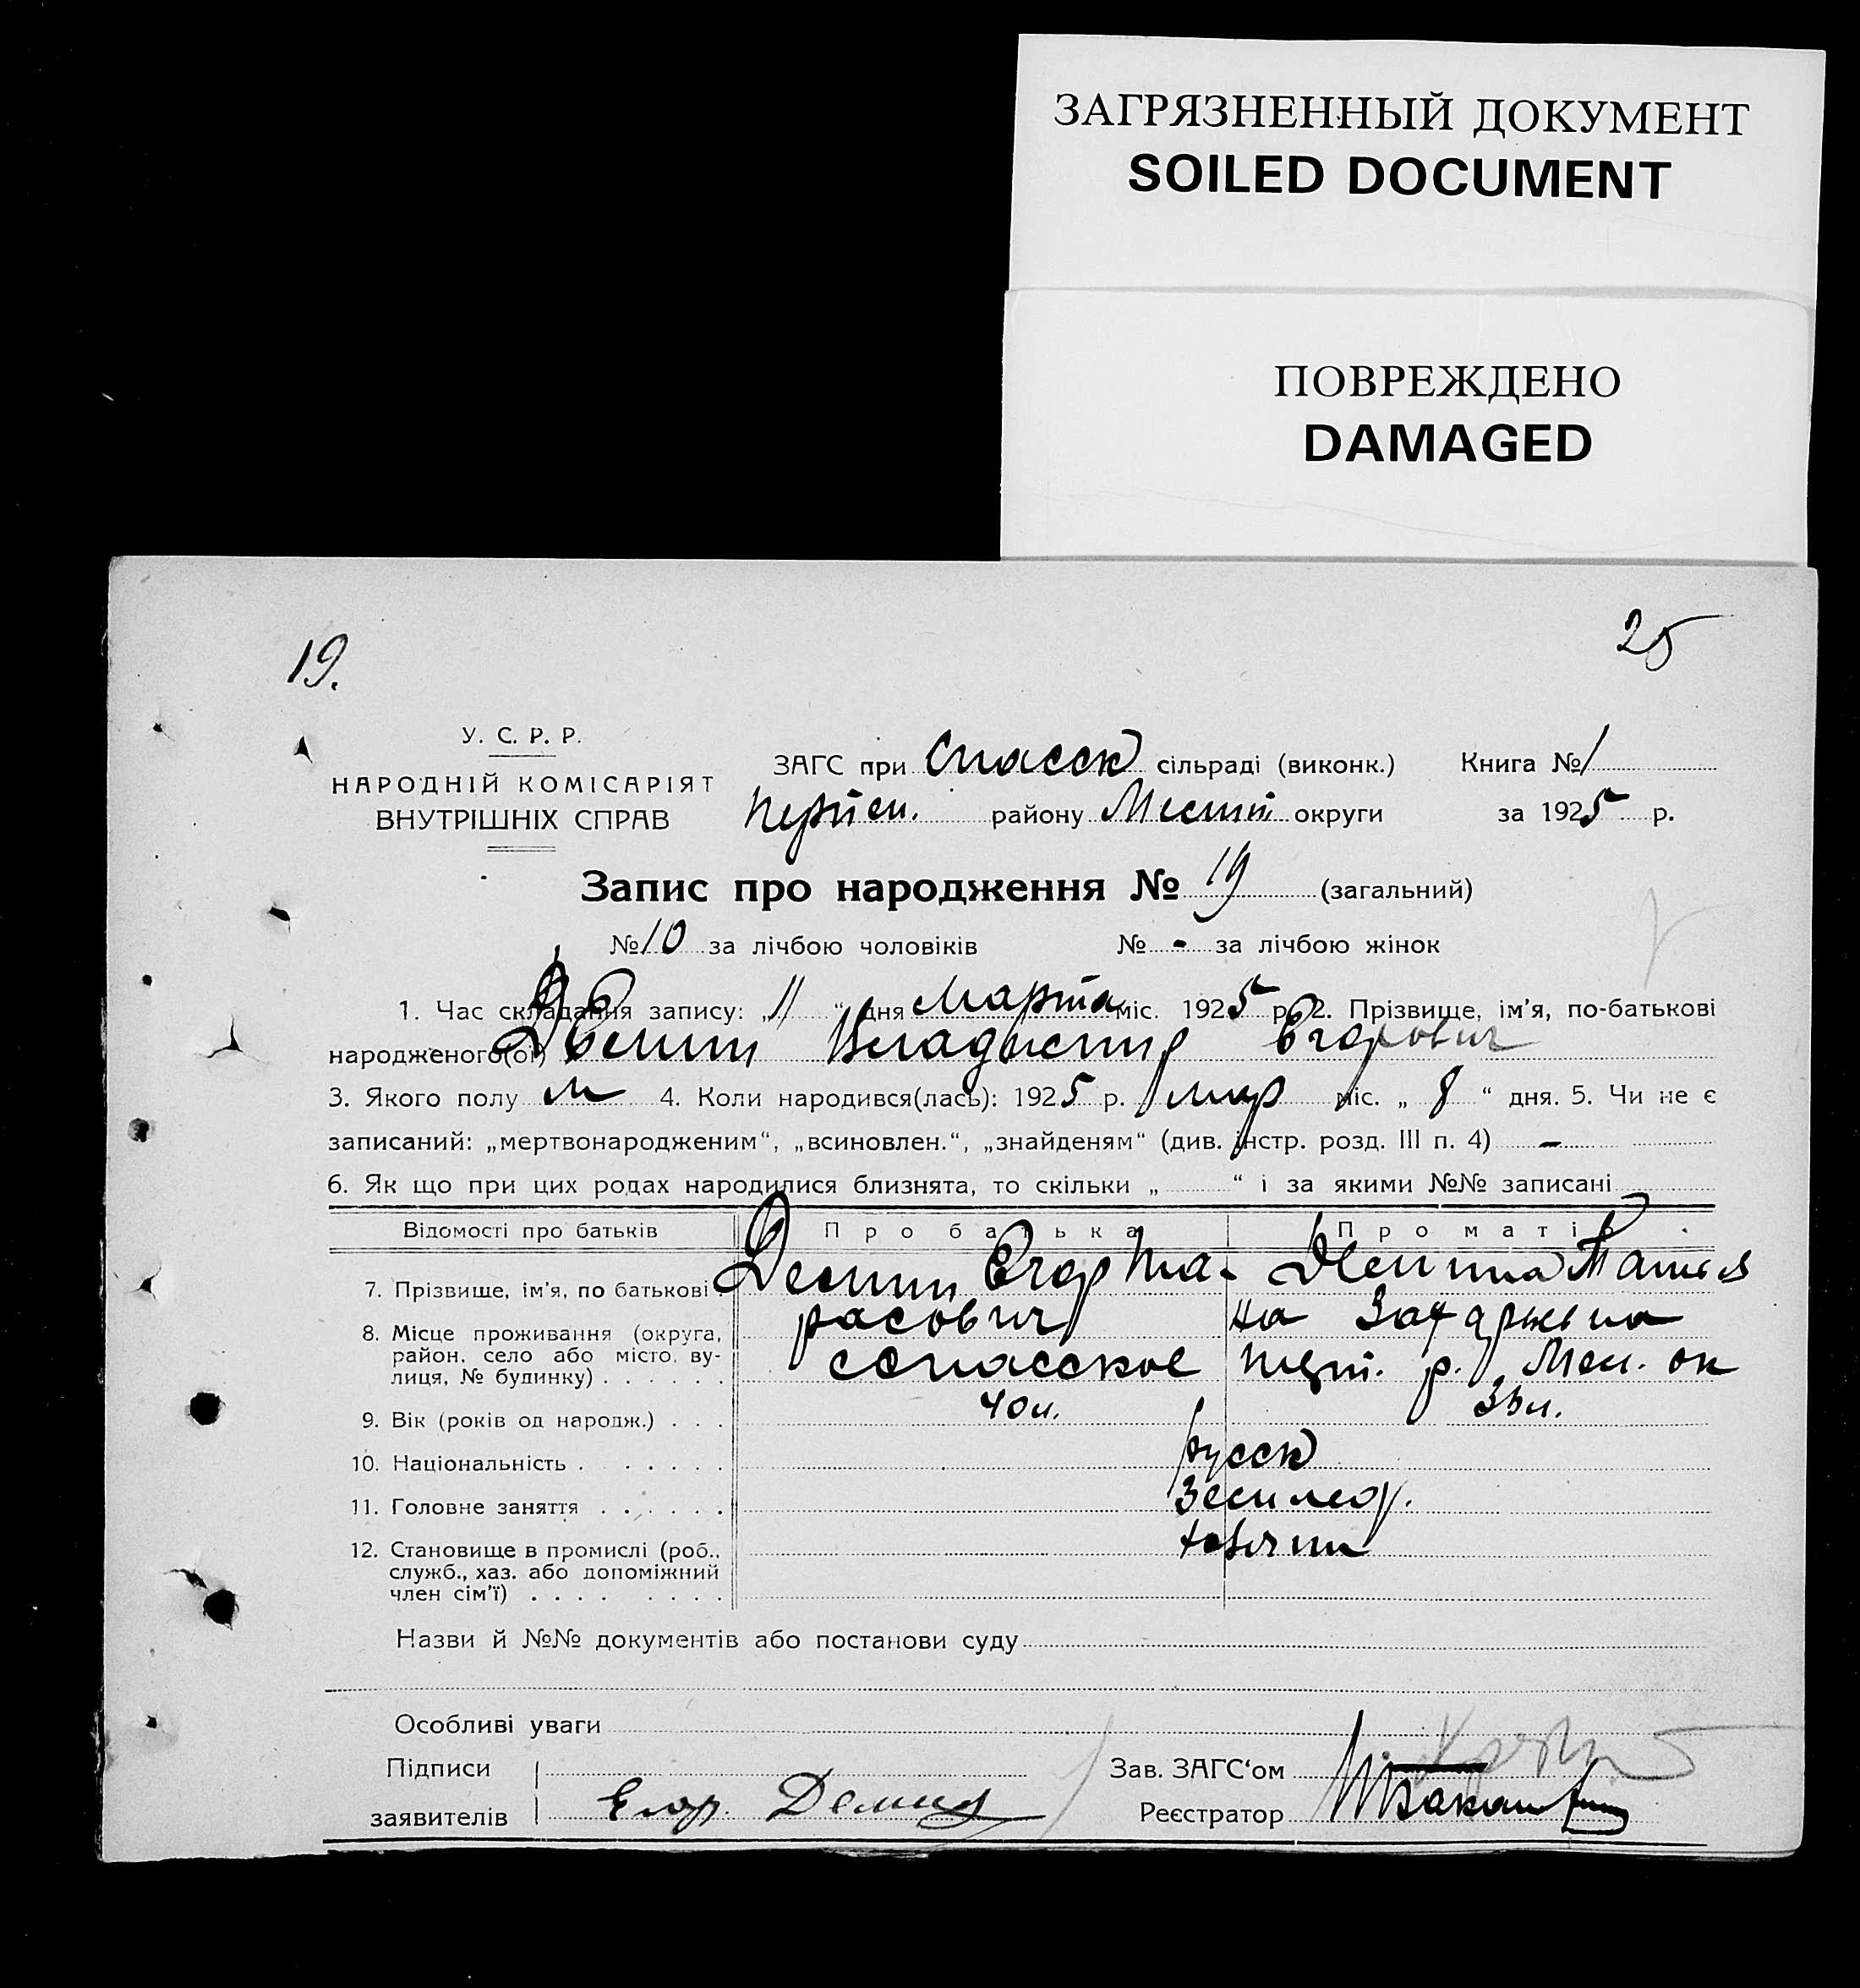 ЗАГРЯЗНЕННЫЙ ДОКУМЕНТ
SOILED DOCUMENT
ПОВРЕЖДЕНО
DAMAGED
19.
25
У. С. Р. Р.
НАРОДНІЙ КОМІСАРІЯТ
ВНУТРІШНІХ СПРАВ
ЗАГС при Спасск сільраді (виконк.) Книга № 1
району округи за 1925 р.
Запис про народження № 19 (загальний)
№ 10 за лічбою чоловіків № - за лічбою жінок
1. Час складання запису: „11“ дня Марта міс. 1925 р. 2. Прізвище, ім'я, по-батькові
народженого(ої) Демин Владистир Егорович
3. Якого полу м 4. Коли народився(лась): 1925 р. мар міс. „8“ дня. 5. Чи не є
записаний: „мертвонародженим“, „всиновлен.“, „знайденям“ (див. інстр. розд. III п. 4) -
6. Як що при цих родах народилися близнята, то скільки „ “ і за якими №№ записані
Відомості про батьків Про батька Про матір
7. Прізвище, ім'я, по батькові. Демин Егор Та- Демина Татья
расович на Захарьевна
8. Місце проживання (округа,
район, село або місто, ву-
лиця, № будинку) . . . . . . с Спасское р. ок
9. Вік (років од народж.) . . . 40 л. л.
10. Національність . . . . . . русск
11. Головне заняття . . . . . . Землед.
12. Становище в промислі (роб.,
служб., хаз. або допоміжний
член сім'ї) . . . . . . . .
Назви й №№ документів або постанови суду
Особливі уваги
Підписи
заявителів Егор Демин
Зав. ЗАГС'ом
Реєстратор